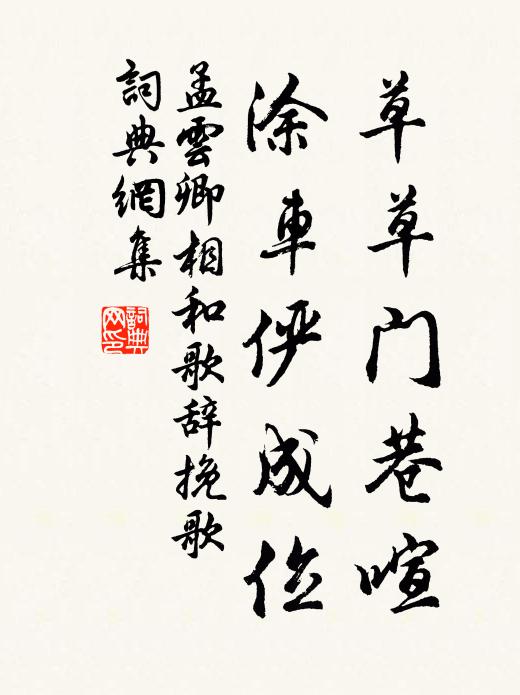 草草门巷喧
涂車俨成位
孟雲卿相和歌辞挽歌
詞典網集
詞典网印